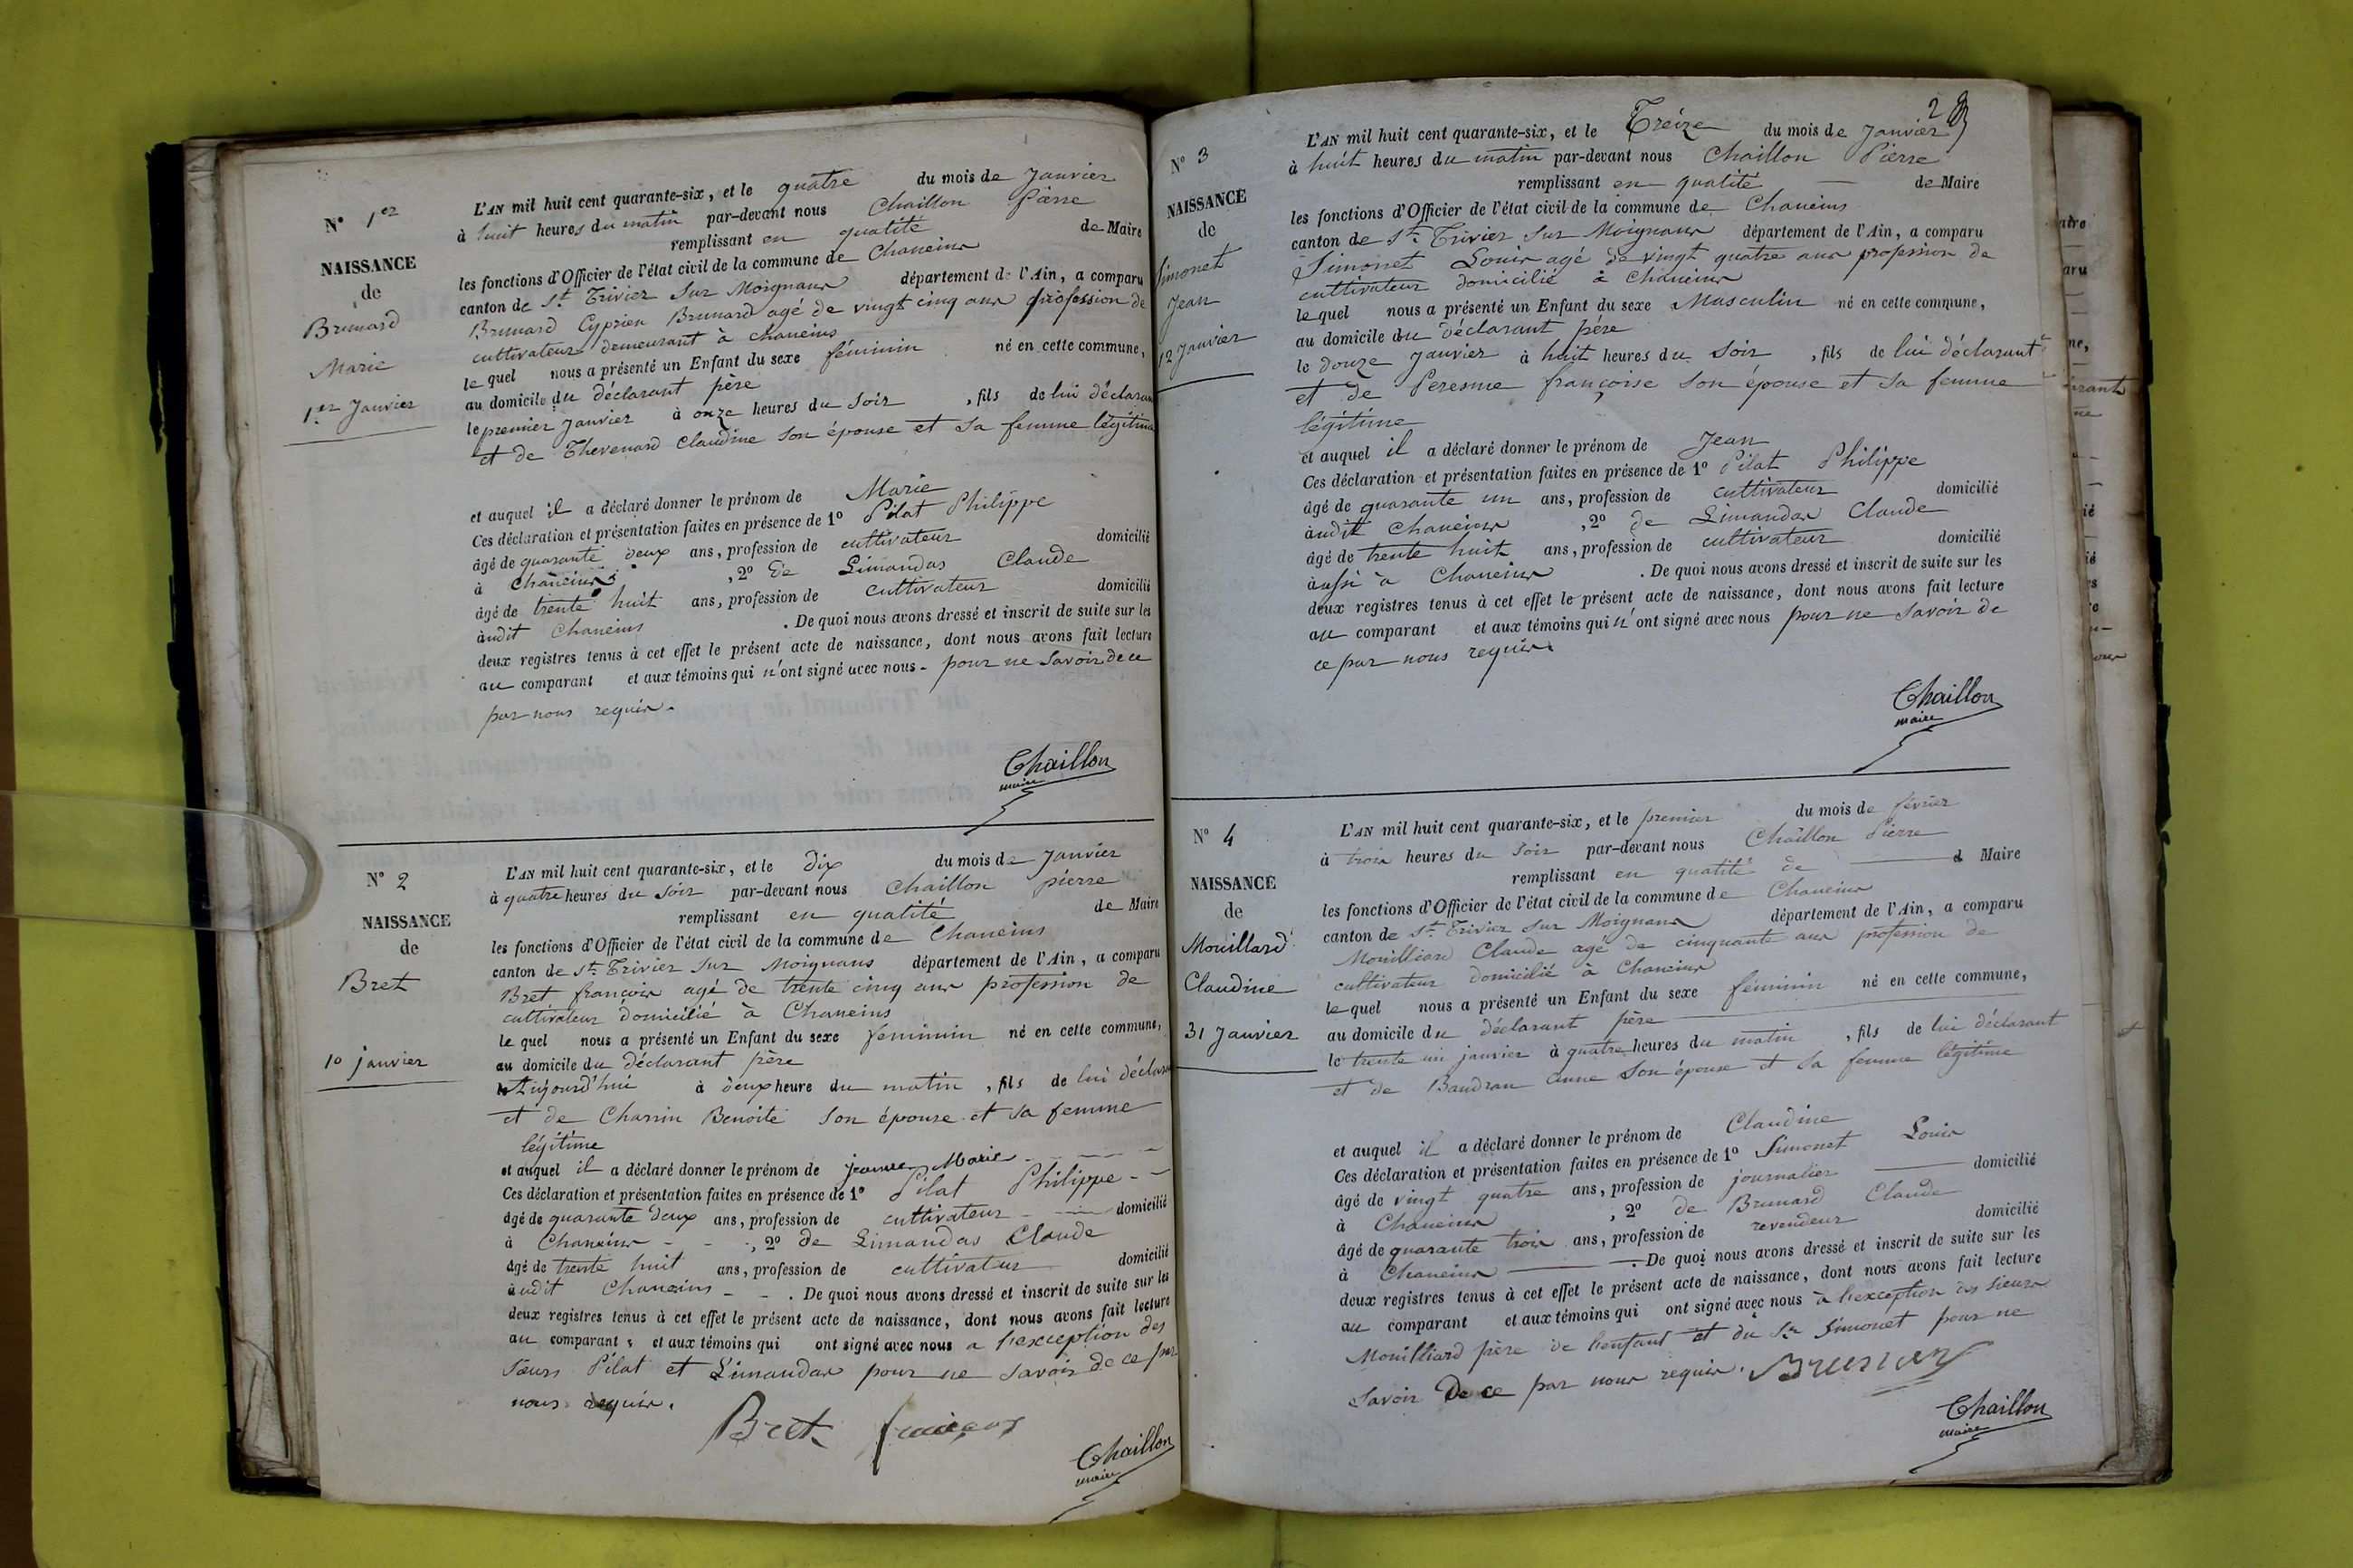 N° 1er
NAISSANCE
de
Brunard
Marie
1er Janvier
L'AN mil huit cent quarante-six, et le quatre du mois de Janvier
à huit heures du matin par-devant nous Chaillon Pierre
remplissant en qualité de Maire
les fonctions d'Officier de l'état civil de la commune de Chaneins
canton de St. Trivier Sur Moignans département de l'Ain, a comparu
Brunard Cyprien Brunard agé de vingt cinq ans profession de
cultivateur demeurant à chaneins
le quel nous a présenté un Enfant du sexe féminin né en cette commune,
au domicile du déclarant père
le premier Janvier à onze heures du Soir , fils de lui déclarant
et de Thevenard Claudine Son épouse et Sa femme légitime
et auquel il a déclaré donner le prénom de Marie
Ces déclaration et présentation faites en présence de 1° Pilat Philippe
âgé de quarante deux ans, profession de cultivateur domicilié
à Chaneins , 2° de Limandas Claude
âgé de trente huit ans, profession de cultivateur domicilié
audit Chaneins . De quoi nous avons dressé et inscrit de suite sur les
deux registres tenus à cet effet le présent acte de naissance, dont nous avons fait lecture
au comparant et aux témoins qui n'ont signé avec nous - pour ne Savoir de ce
par nous requis.
Chaillon
maire
N° 2
NAISSANCE
de
Bret
10 janvier
L'AN mil huit cent quarante-six, et le dix du mois de Janvier
à quatre heures du Soir par-devant nous Chaillon pierre
remplissant en qualité de Maire
les fonctions d'Officier de l'état civil de la commune de Chaneins
canton de St. Trivier Sur Moignans département de l'Ain, a comparu
Bret françois agé de trente cinq ans profession de
cultivateur domicilié à Chaneins
le quel nous a présenté un Enfant du sexe feminin né en cette commune,
au domicile du déclarant père
le Aujourd'hui à deux heure du matin , fils de lui déclarant
et de Charrin Benoite Son épouse et sa femme
légitime
et auquel il a déclaré donner le prénom de jeanne Marie
Ces déclaration et présentation faites en présence de 1° Pilat Philippe
âgé de quarante deux ans, profession de cultivateur domicilié
à Chaneins , 2° de Limandas Claude
âgé de trente huit ans, profession de cultivateur domicilié
audit Chaneins . De quoi nous avons dressé et inscrit de suite sur les
deux registres tenus à cet effet le présent acte de naissance, dont nous avons fait lecture
au comparant et aux témoins qui ont signé avec nous a l'exception des
Sieurs Pilat et Limandas pour ne savoir de ce par
nous requis.
Bret françois
Chaillon
maire
N° 3
NAISSANCE
de
Simonet
Jean
12 Janvier
2
L'AN mil huit cent quarante-six, et le Treize du mois de Janvier
à huit heures du matin par-devant nous Chaillon Pierre
remplissant en qualité de Maire
les fonctions d'Officier de l'état civil de la commune de Chaneins
canton de St. Trivier Sur Moignans département de l'Ain, a comparu
Simonet Louis agé de vingt quatre ans profession de
cultivateur domicilié à Chaneins
le quel nous a présenté un Enfant du sexe Masculin né en cette commune,
au domicile du déclarant père
le douze Janvier à huit heures du Soir , fils de lui déclarant
et de Peresme françoise Son épouse et Sa femme
légitime
et auquel il a déclaré donner le prénom de Jean
Ces déclaration et présentation faites en présence de 1° Pilat Philippe
âgé de quarante un ans, profession de cultivateur domicilié
audit Chaneins , 2° de Limandas Claude
âgé de trente huit ans, profession de cultivateur domicilié
aussi à Chaneins . De quoi nous avons dressé et inscrit de suite sur les
deux registres tenus à cet effet le présent acte de naissance, dont nous avons fait lecture
au comparant et aux témoins qui n'ont signé avec nous pour ne Savoir de
ce par nous requis.
Chaillon
maire
N° 4
NAISSANCE
de
Mouillard
Claudine
31 Janvier
L'AN mil huit cent quarante-six, et le premier du mois de février
à trois heures du Soir par-devant nous Chaillon Pierre
remplissant en qualité de Maire
les fonctions d'Officier de l'état civil de la commune de Chaneins
canton de St. Trivier Sur Moignans département de l'Ain, a comparu
Mouilliard Claude agé de cinquante ans profession de
cultivateur domicilié à Chaneins
le quel nous a présenté un Enfant du sexe féminin né en cette commune,
au domicile du déclarant père
le trente un janvier à quatre heures du matin , fils de lui déclarant
et de Baudran anne Son épouse et Sa femme légitime
et auquel il a déclaré donner le prénom de Claudine
Ces déclaration et présentation faites en présence de 1° Simonet Louis
âgé de vingt quatre ans, profession de journalier domicilié
à Chaneins , 2° de Brunard Claude
âgé de quarante trois ans, profession de revendeur domicilié
à Chaneins . De quoi nous avons dressé et inscrit de suite sur les
deux registres tenus à cet effet le présent acte de naissance, dont nous avons fait lecture
au comparant et aux témoins qui ont signé avec nous à l'exception des Sieurs
Mouilliard père de l'enfant et du Sr Simonet pour ne
Savoir De ce par nous requis.
Chaillon
maire